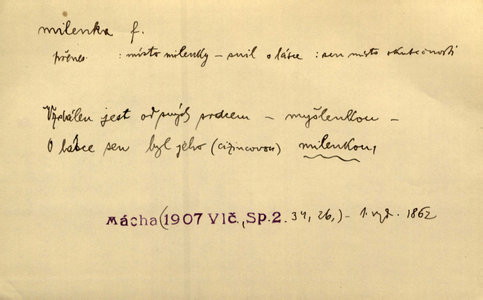 milenka f.
přenes : místo milenky – snil o lásce : sen místo skutečnosti
jest od svých srdcem – myšlenkou –
O lásce sen byl jeho (cizincovou) milenkou,
Mácha (1907 Vlč., Sp.2. 34, 26,) – 1. vyd. 1862